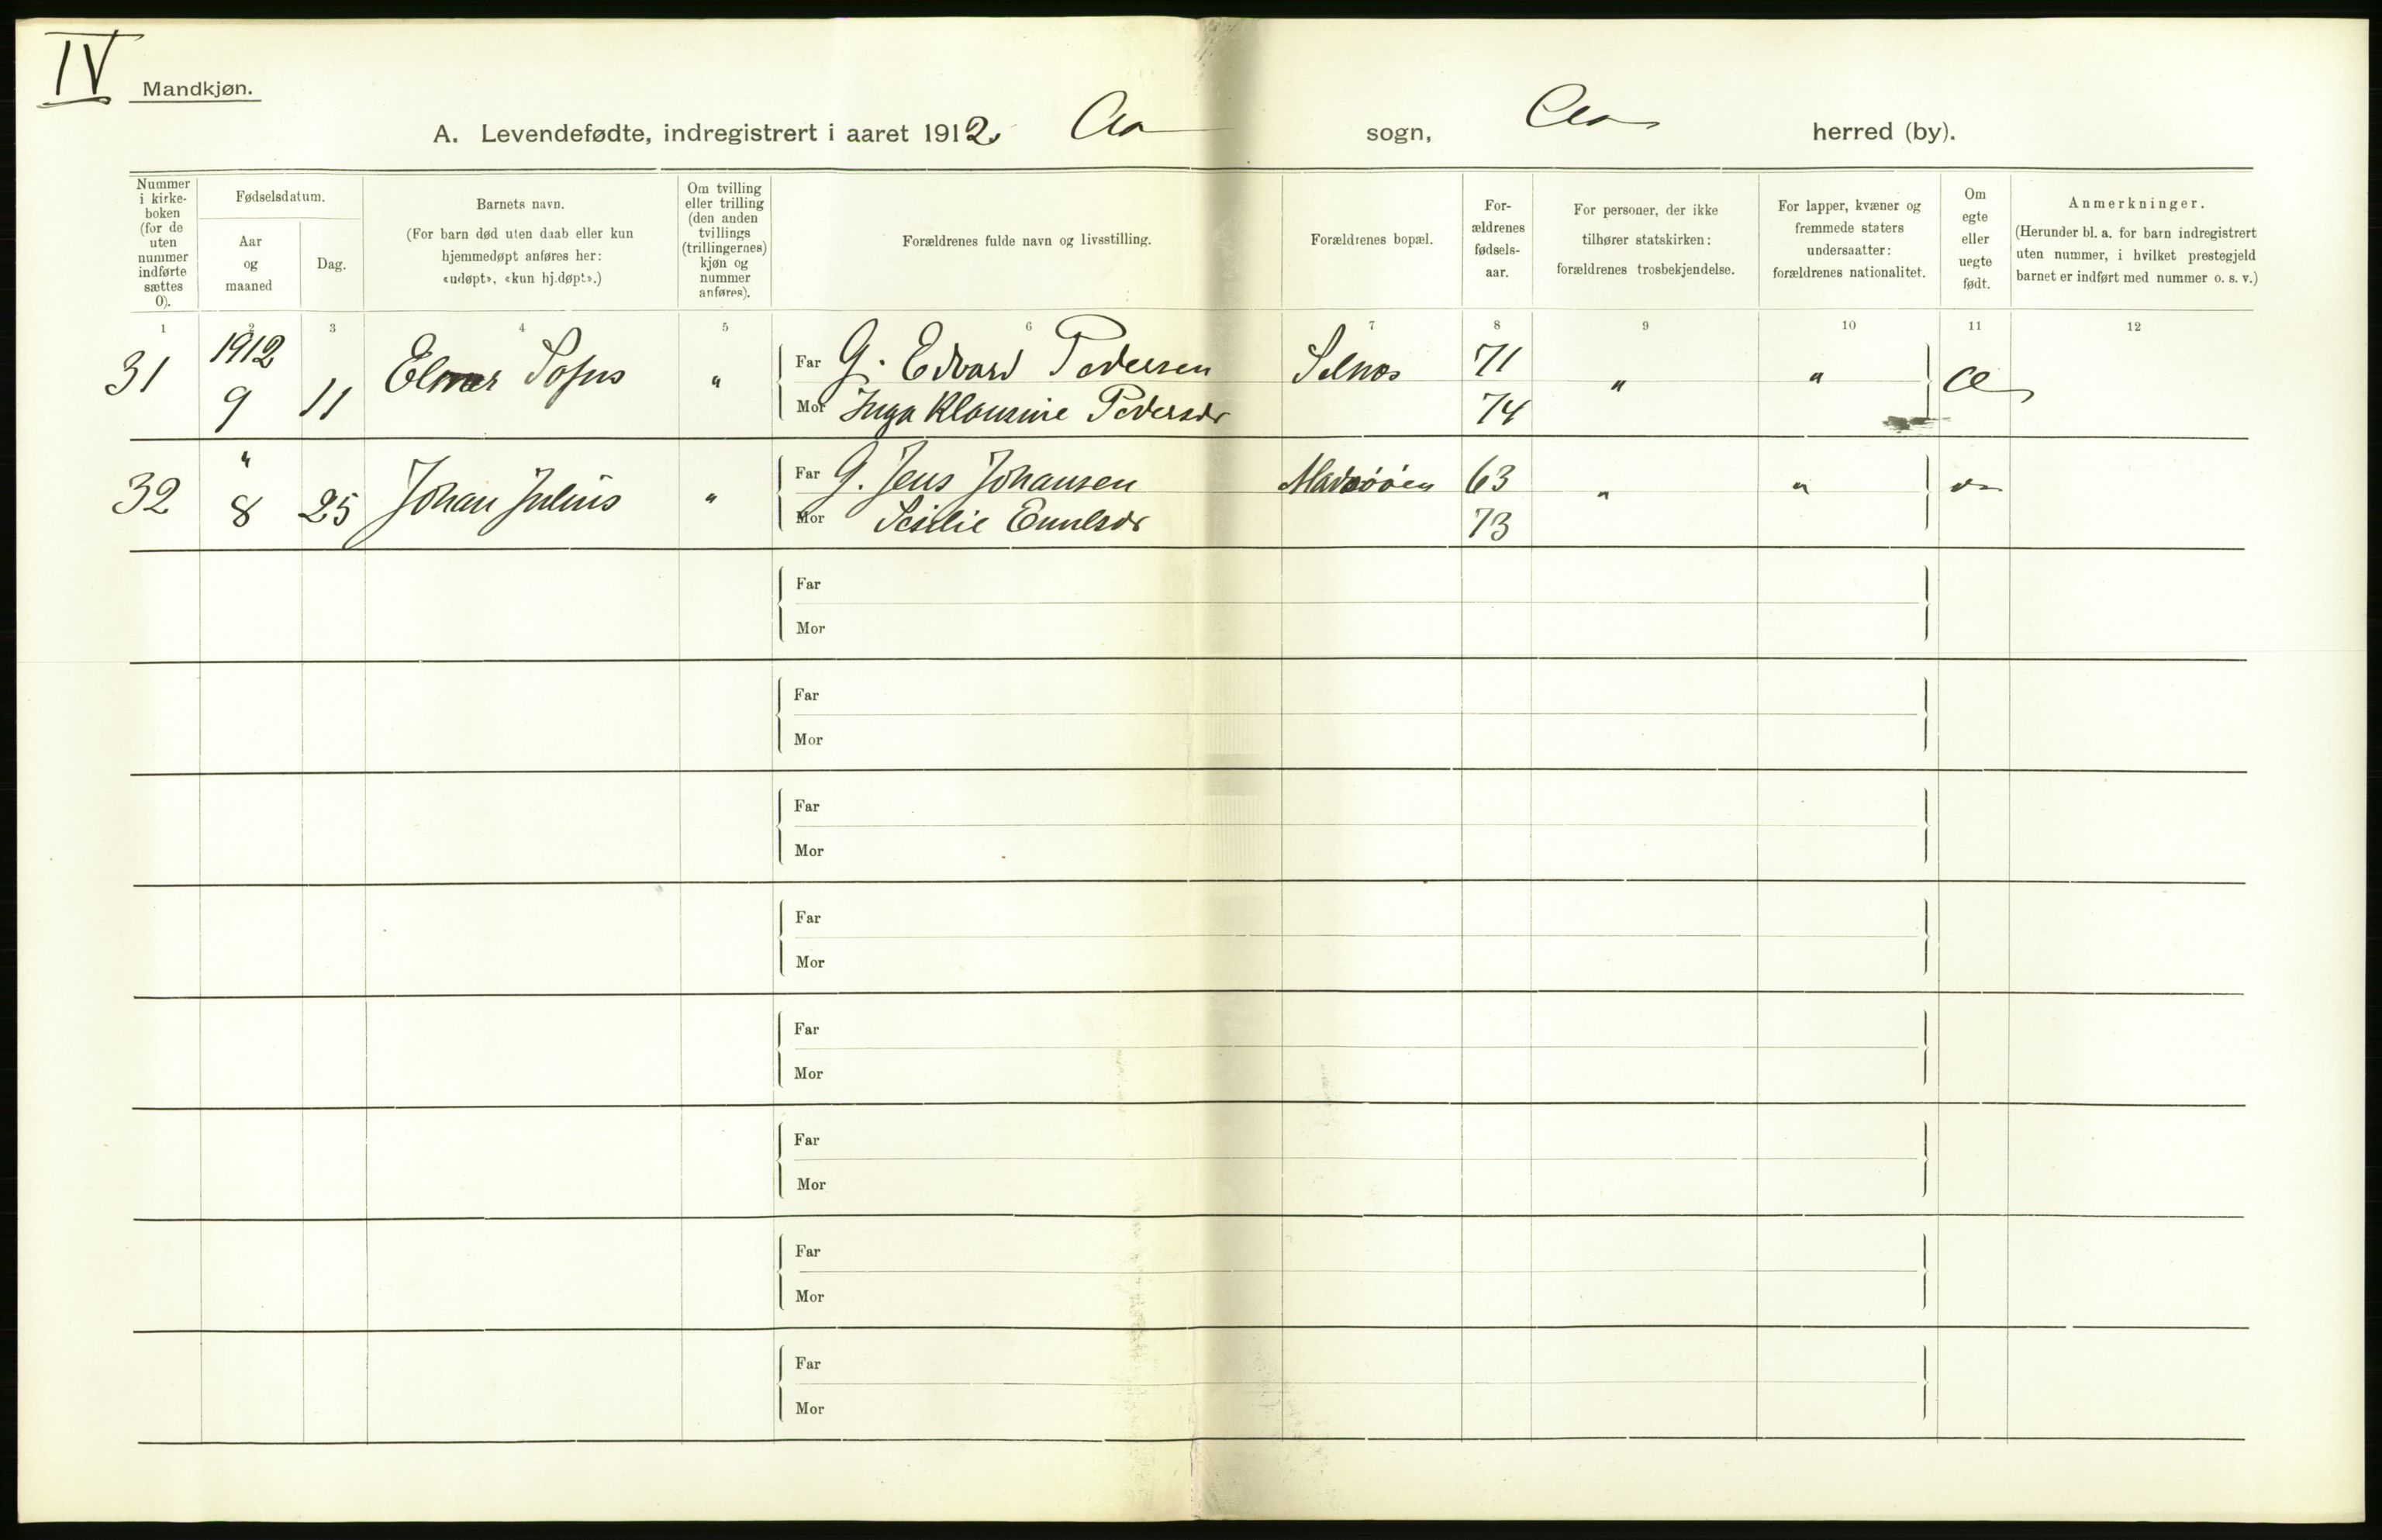 IV
Mandkjøn.
A. Levendefødte, indregistrert i aaret 1912. Aa sogn, Aa herred (by).
Nummer i kirke-boken (for de uten nummer indførte sættes 0).
Fødselsdatum.
Aar og maaned
Dag.
Barnets navn.
(For barn død uten daab eller kun
hjemmedøpt anføres her:
«udøpt», «kun hj.døpt».)
Om tvilling
eller trilling
(den anden
tvillings
(trillingernes)
kjøn og
nummer
anføres).
Forældrenes fulde navn og livsstilling.
Forældrenes bopæl.
For-
ældrenes
fødsels-
aar.
For personer, der ikke
tilhører statskirken:
forældrenes trosbekjendelse.
For lapper, kvæner og
fremmede staters
undersaatter:
forældrenes nationalitet.
Om
egte
eller
uegte
født.
Anmerkninger.
(Herunder bl. a. for barn indregistrert
uten nummer, i hvilket prestegjeld
barnet er indført med nummer o. s. v.)
1 2 3 4 5 6 7 8 9 10 11 12
31 1912 9 11 Elmer Sofus " Far G. Edvard Pedersen Selnes 71 " " Æ
Mor Inga Klausine Pedersdr 74
32 " 8 25 Johan Julius " Far G. Jens Johansen 63 " " do
Mor Sesilie Emilsdr 73
Far
Mor
Far
Mor
Far
Mor
Far
Mor
Far
Mor
Far
Mor
Far
Mor
Far
Mor